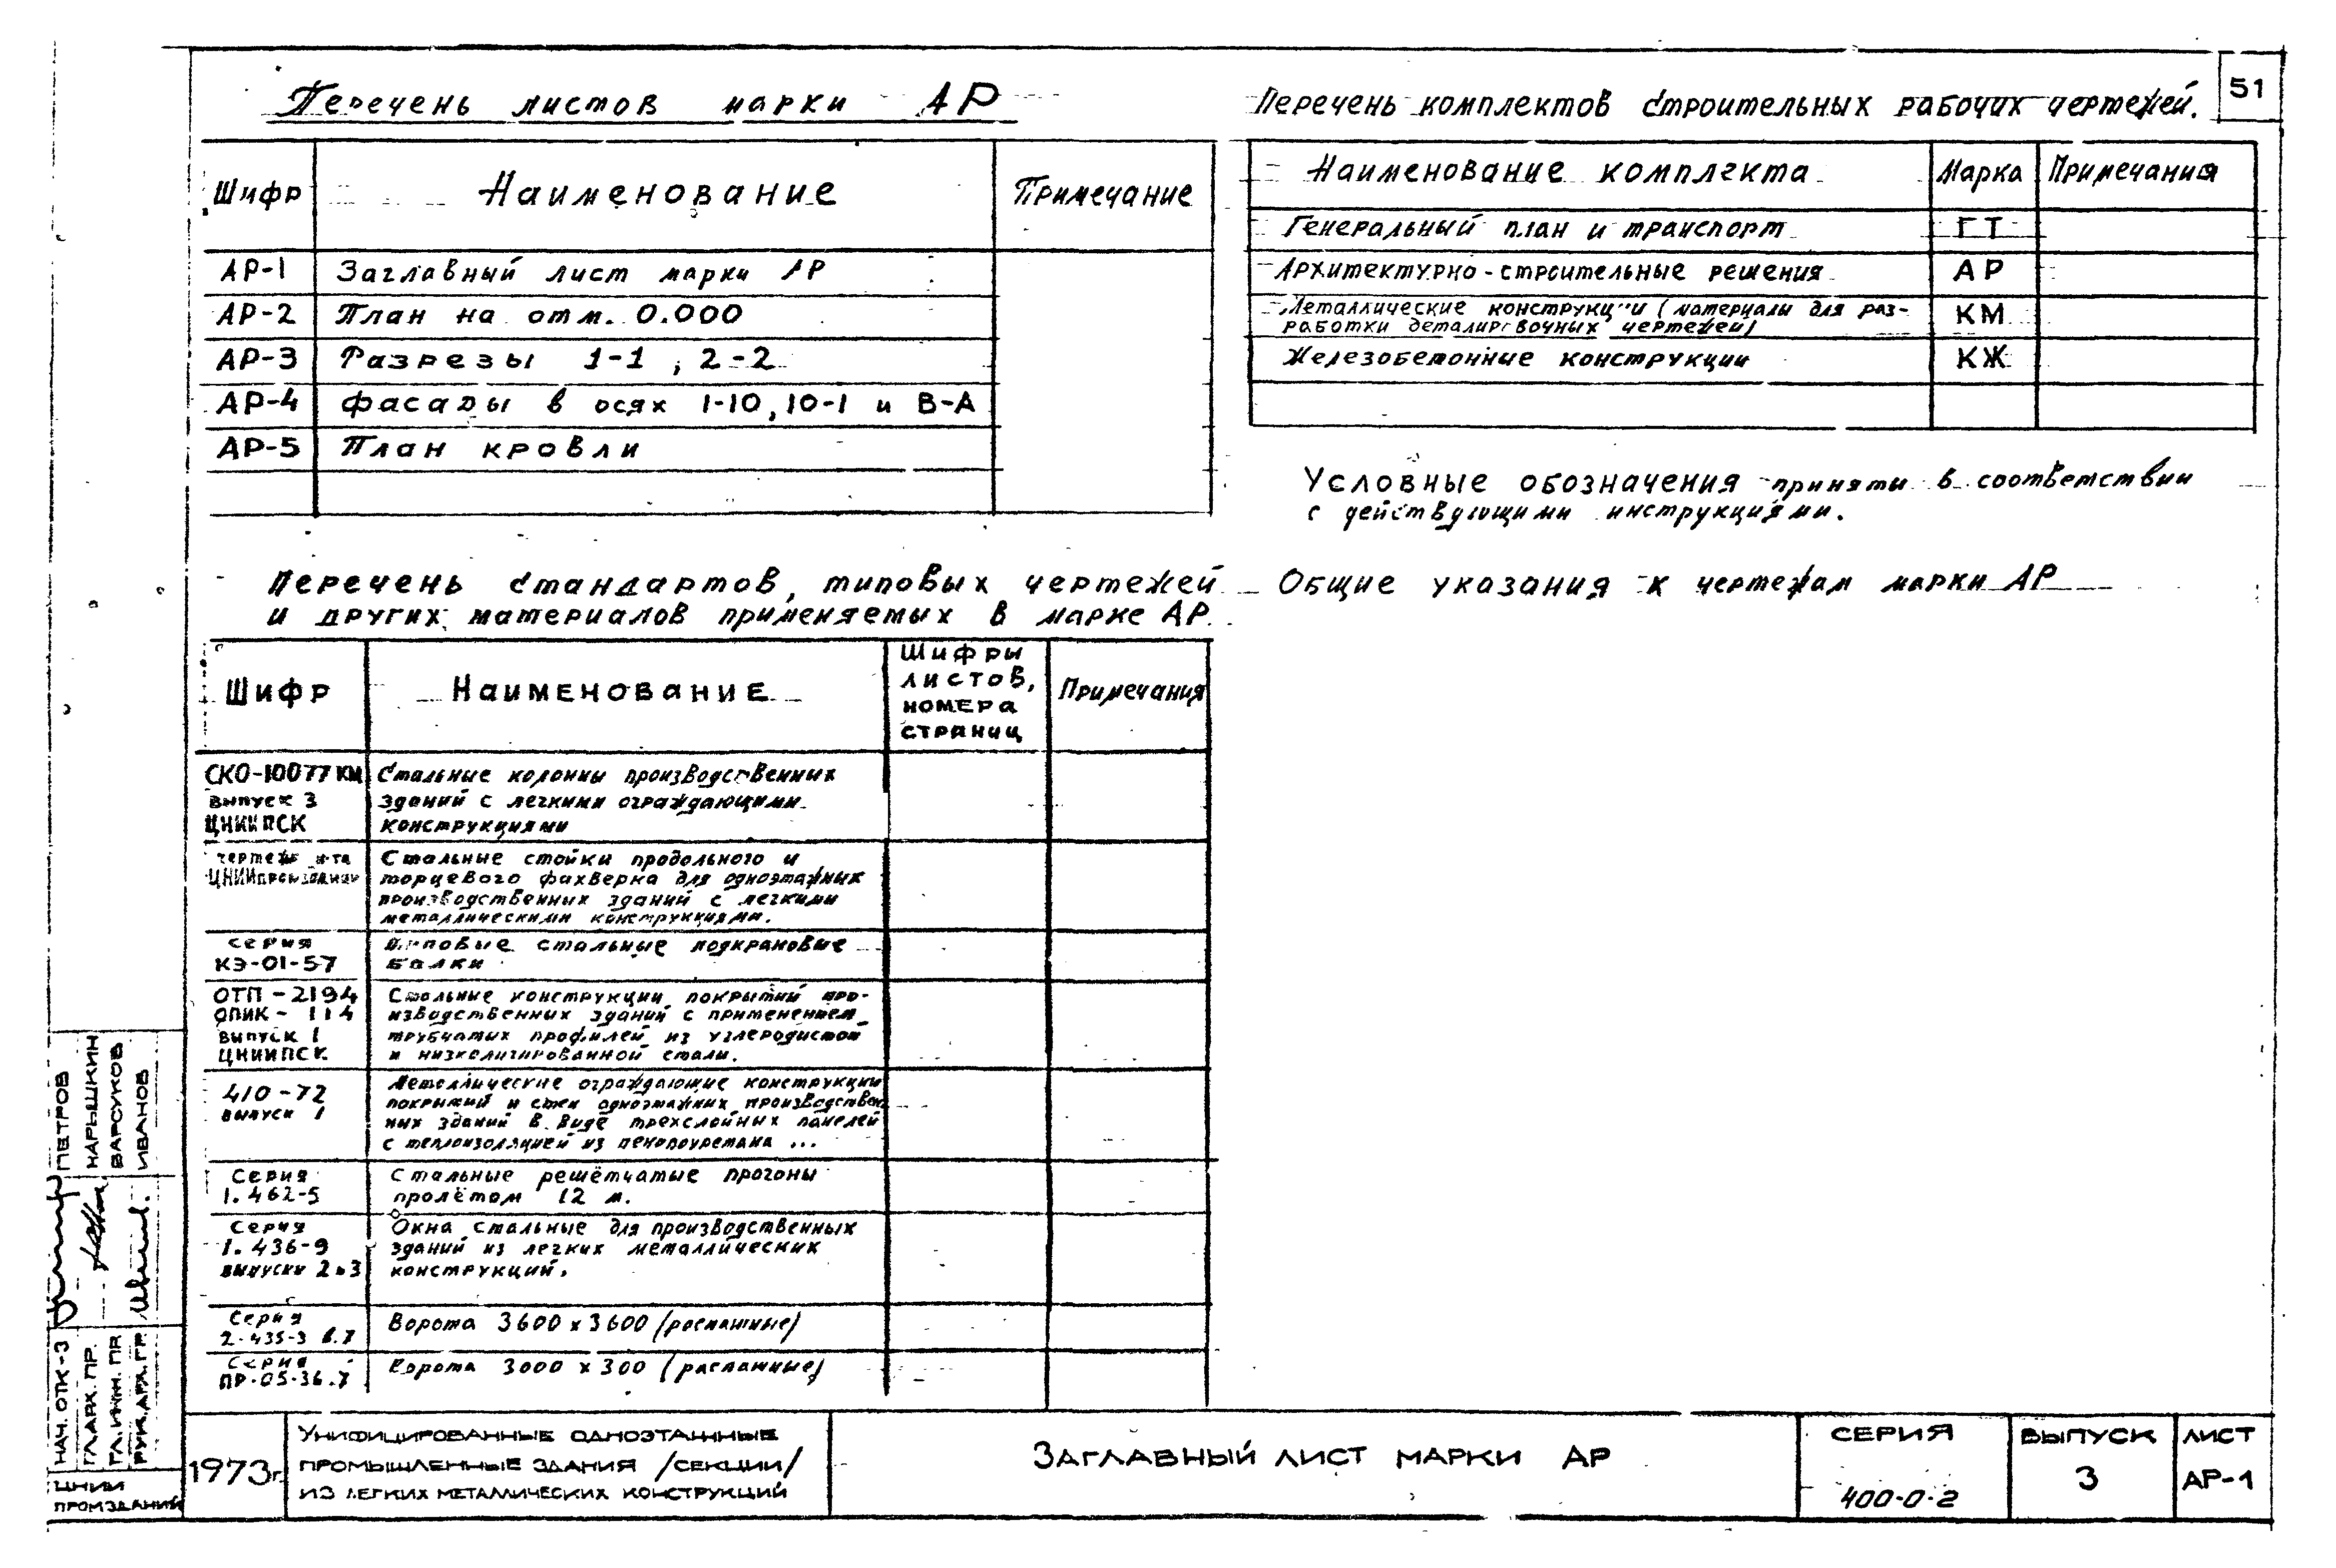 51
Перечень листов марки АР
Шифр Наименование Примечание
АР-1 Заглавный лист марки АР
АР-2 План на отм. 0.000
АР-3 Разрезы 1-1, 2-2
АР-4 Фасады в осях 1-10, 10-1 и В-А
АР-5 План кровли
Перечень комплектов строительных рабочих чертежей.
Наименование комплекта Марка Примечания
Генеральный план и транспорт ГТ
Архитектурно-строительные решения АР
Металлические конструкции (материалы для раз-
работки деталировочных чертежей) КМ
Железобетонные конструкции КЖ
Условные обозначения приняты в соответствии
с действующими инструкциями.
Перечень стандартов, типовых чертежей
и других материалов применяемых в марке АР.
Общие указания к чертежам марки АР
Шифр Наименование Шифры листов, номера страниц Примечания
СКО-10077 КМ Стальные колонны производственных
выпуск 3 зданий с легкими ограждающими
ЦНИИПСК конструкциями
Стальные стойки продольного и
ЦНИИпромзданий торцевого фахверка для одноэтажных
производственных зданий с легкими
металлическими конструкциями.
Серия Типовые стальные подкрановые
КЭ-01-57 балки
ОТП-2194 Стальные конструкции покрытий про-
ОПИК-114 изводственных зданий с применением
выпуск 1 трубчатых профилей из углеродистой
ЦНИИПСК и низколигированной стали.
410-72 Металлические ограждающие конструкции
выпуск 1 покрытий и стен одноэтажных производствен
ных зданий в виде трехслойных панелей
с теплоизоляцией из пенопоуретана ...
Серия Стальные решётчатые прогоны
1.462-5 пролётом 12 м.
Серия Окна стальные для производственных
1.436-9 зданий из легких металлических
выпуски 2 и 3 конструкций.
Серия Ворота 3600 х 3600 (распашные)
2-435-3 в.7
Серия Ворота 3000 х 300 (распашные)
ПР-05-36.7
НАЧ. ОТК-3 ПЕТРОВ
ГЛ. АРХ. ПР. НАРЫШКИН
ГЛ. ИНЖ. ПР ВАРСУКОВ
РУК. АРХ. ГР. ИВАНОВ
ЦНИИ
ПРОМЗДАНИЙ
1973г.
Унифицированные одноэтажные
промышленные здания /секции/
из легких металлических конструкций
Заглавный лист марки АР
СЕРИЯ
400-0-2
ВЫПУСК
3
ЛИСТ
АР-1